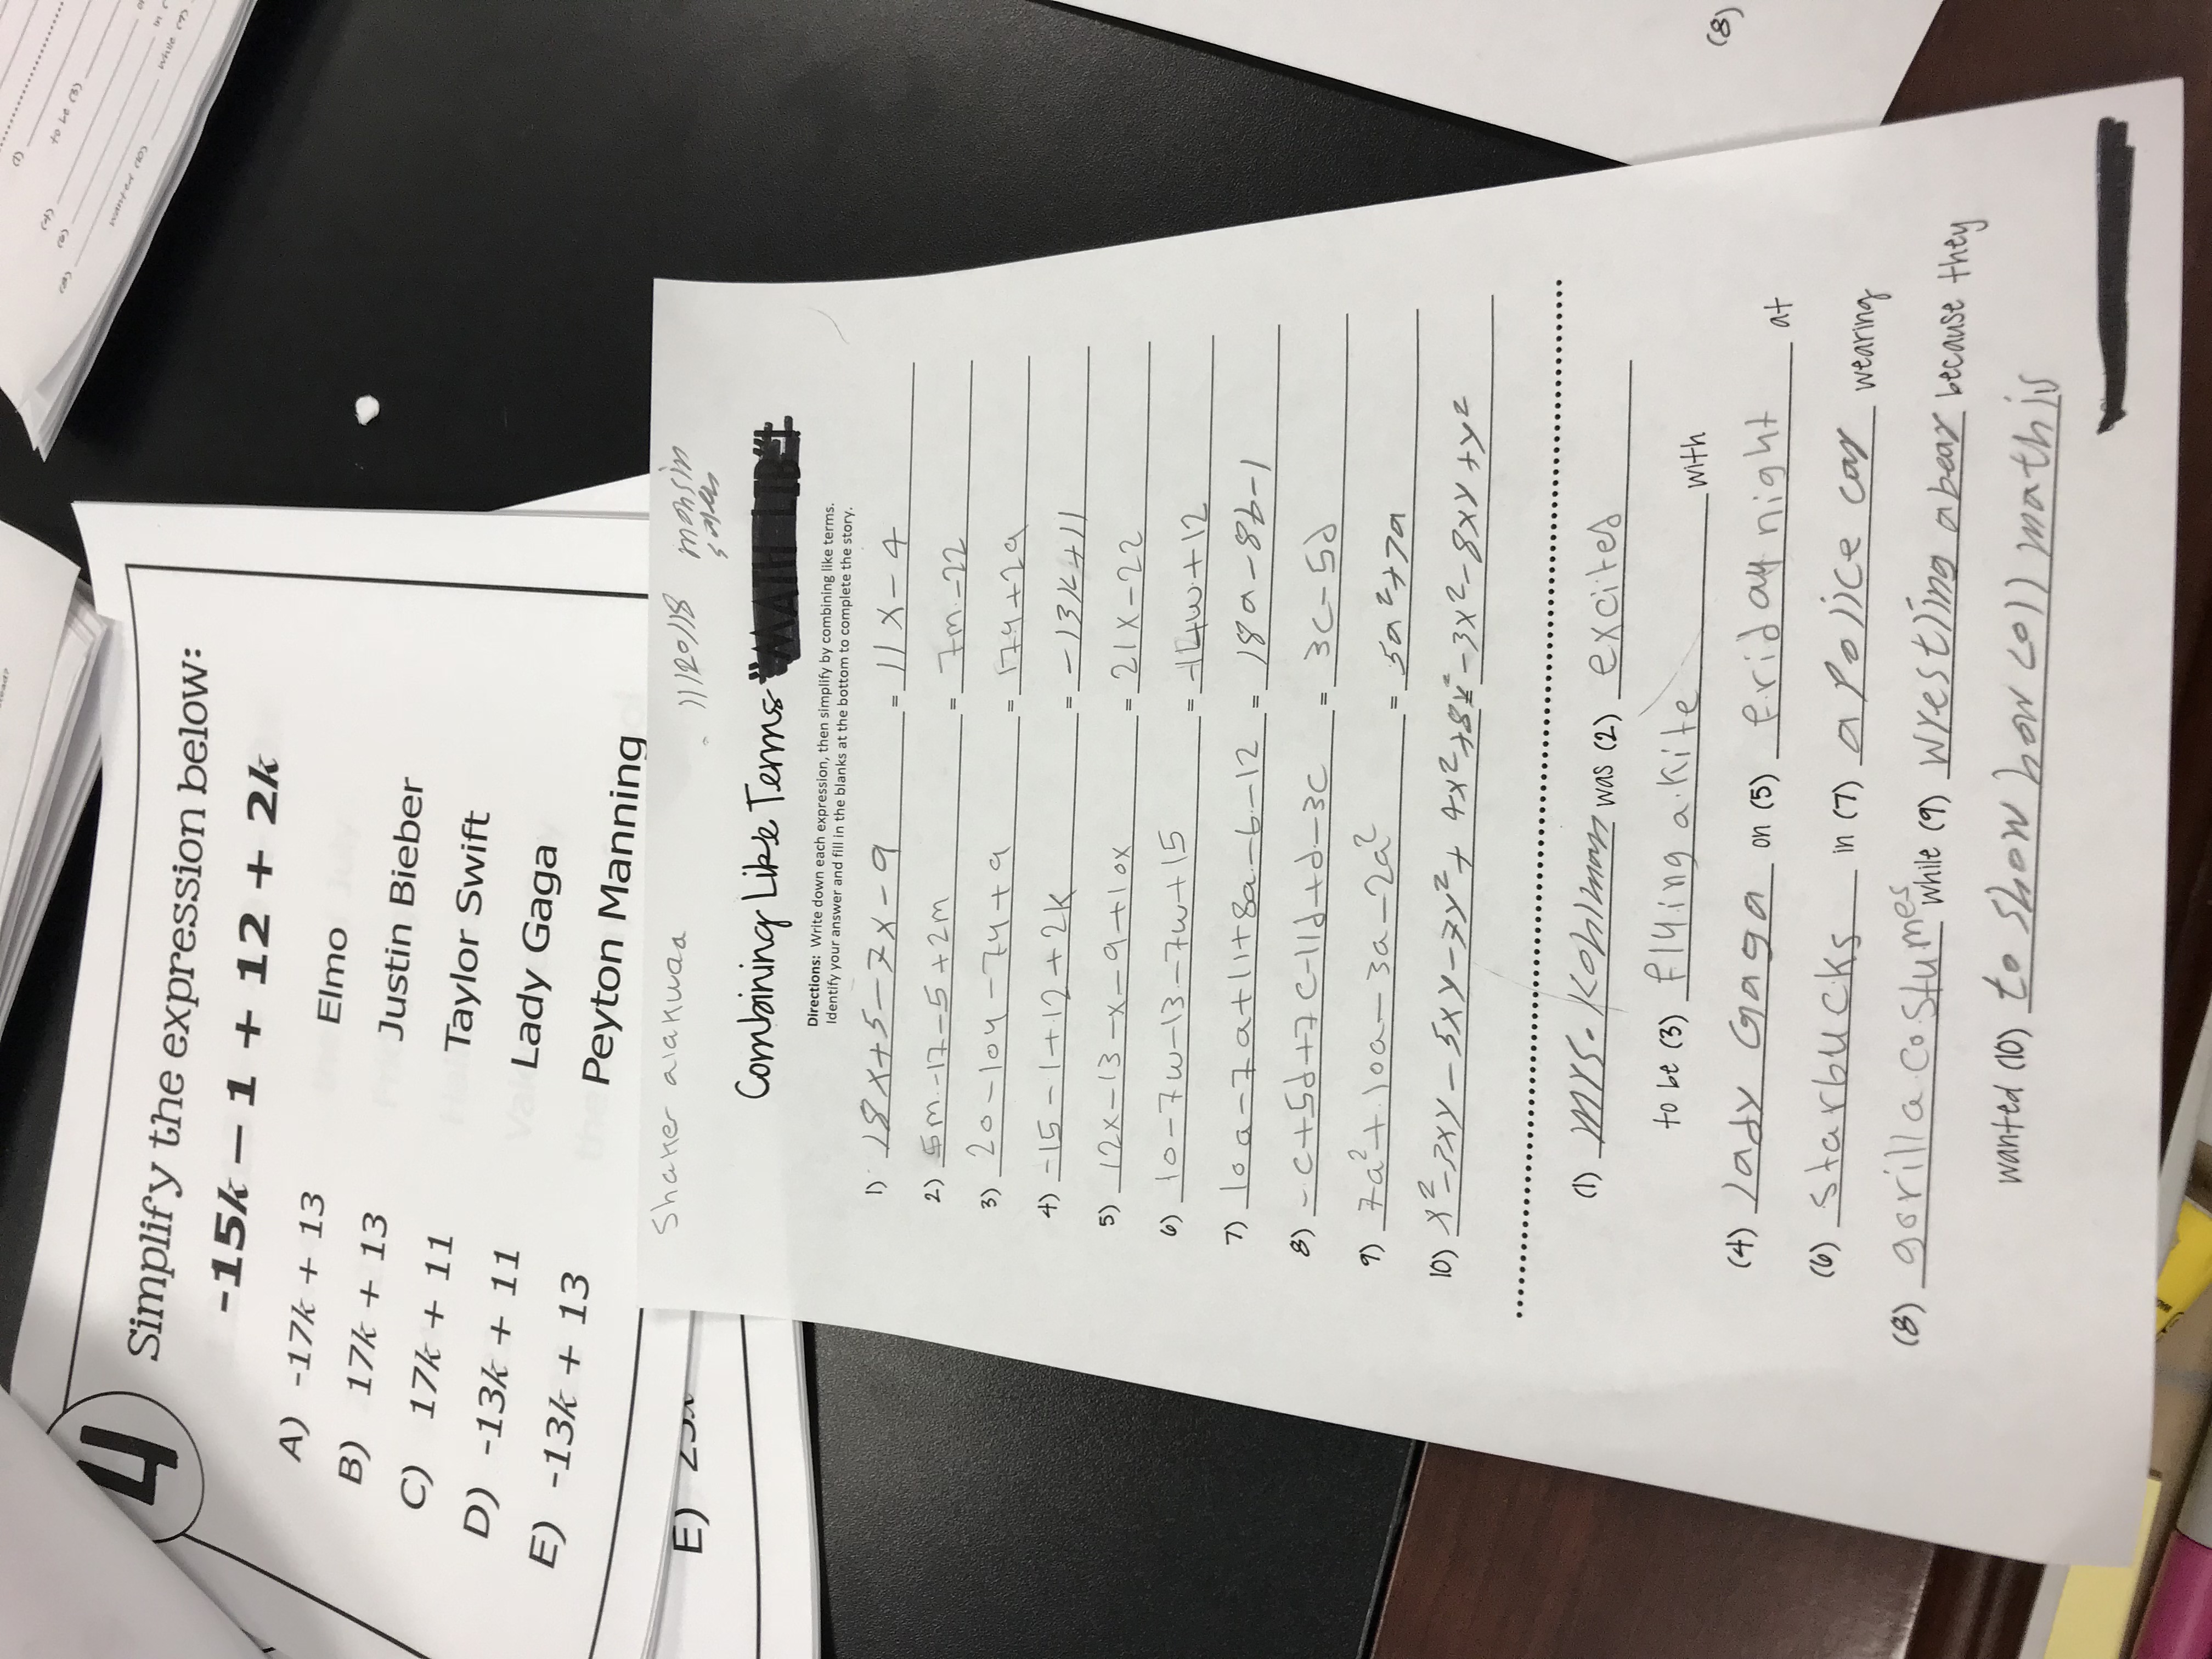 4
Simplify the expression below:
-15k – 1 + 12 + 2k
A) -17k + 13 Elmo
B) 17k + 13 Justin Bieber
C) 17k + 11 Taylor Swift
D) -13k + 11 Lady Gaga
E) -13k + 13 Peyton Manning
E)
Shaker alakwaa 11/20/18 mohsin
Combining Like Terms
Directions: Write down each expression, then simplify by combining like terms.
Identify your answer and fill in the blanks at the bottom to complete the story.
1) 18x+5-7x-9 = 11x-4
2) 5m-17-5+2m = 7m-22
3) 20-10y-7y+9 =
4) -15-1+12+2k = -13k+11
5) 12x-13-x-9+10x = 21x-22
6) 10-7w-13-7w+15 = -14w+12
7) 10a-7a+11+8a-b-12 = 18a-8b-1
8) -c+5d+7c-11d+d-3c = 3c-5d
9) 7a²+10a-3a-2a² = 5a²+7a
10) x²-3xy-5xy-7y²+4x²+8y²-3x²-8xy+y²
(1) mrs. Kohlman was (2) excited
to be (3) flying a kite with
(4) lady Gaga on (5) friday night at
(6) starbucks in (7) a police car wearing
(8) gorilla costumes while (9) wrestling a bear because they
wanted (10) to show how coll math is
(1)
to be (3)
(4)
(6)
(8) while (9)
wanted (10)
(8)